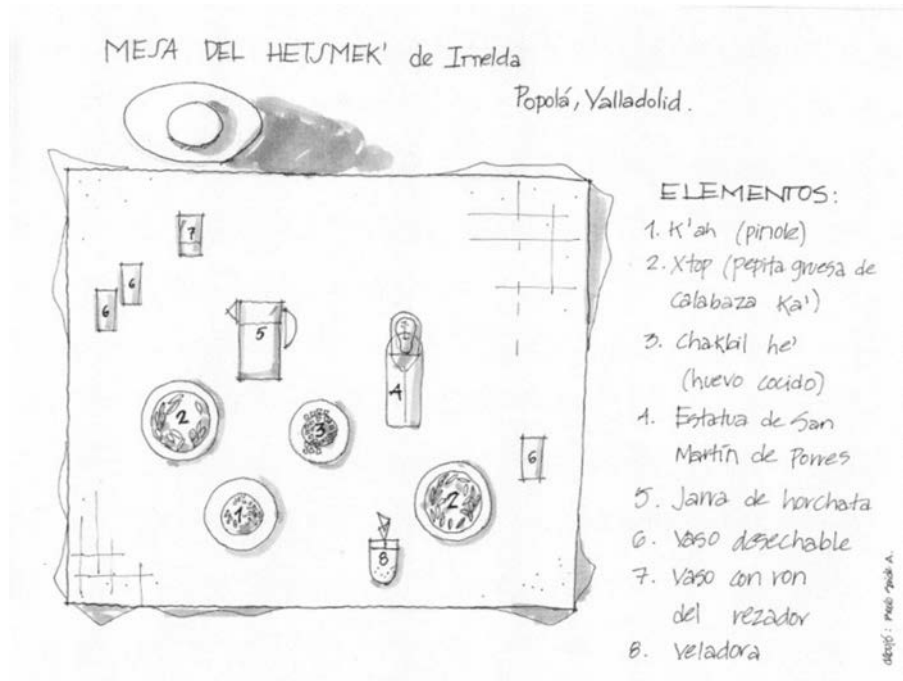 MESA DEL HETSMEK' de Imelda
Popolá, Valladolid.
ELEMENTOS:
1. K'ah (pinole)
2. Xtop (pepita gruesa de
calabaza Ka')
3. Chakbil he'
(huevo cocido)
4. Estatua de San
Martín de Porres
5. Jarra de horchata
6. Vaso desechable
7. Vaso con ron
del rezador
8. Veladora
7
6
6
5
4
2
3
6
1
2
8
dibujó: